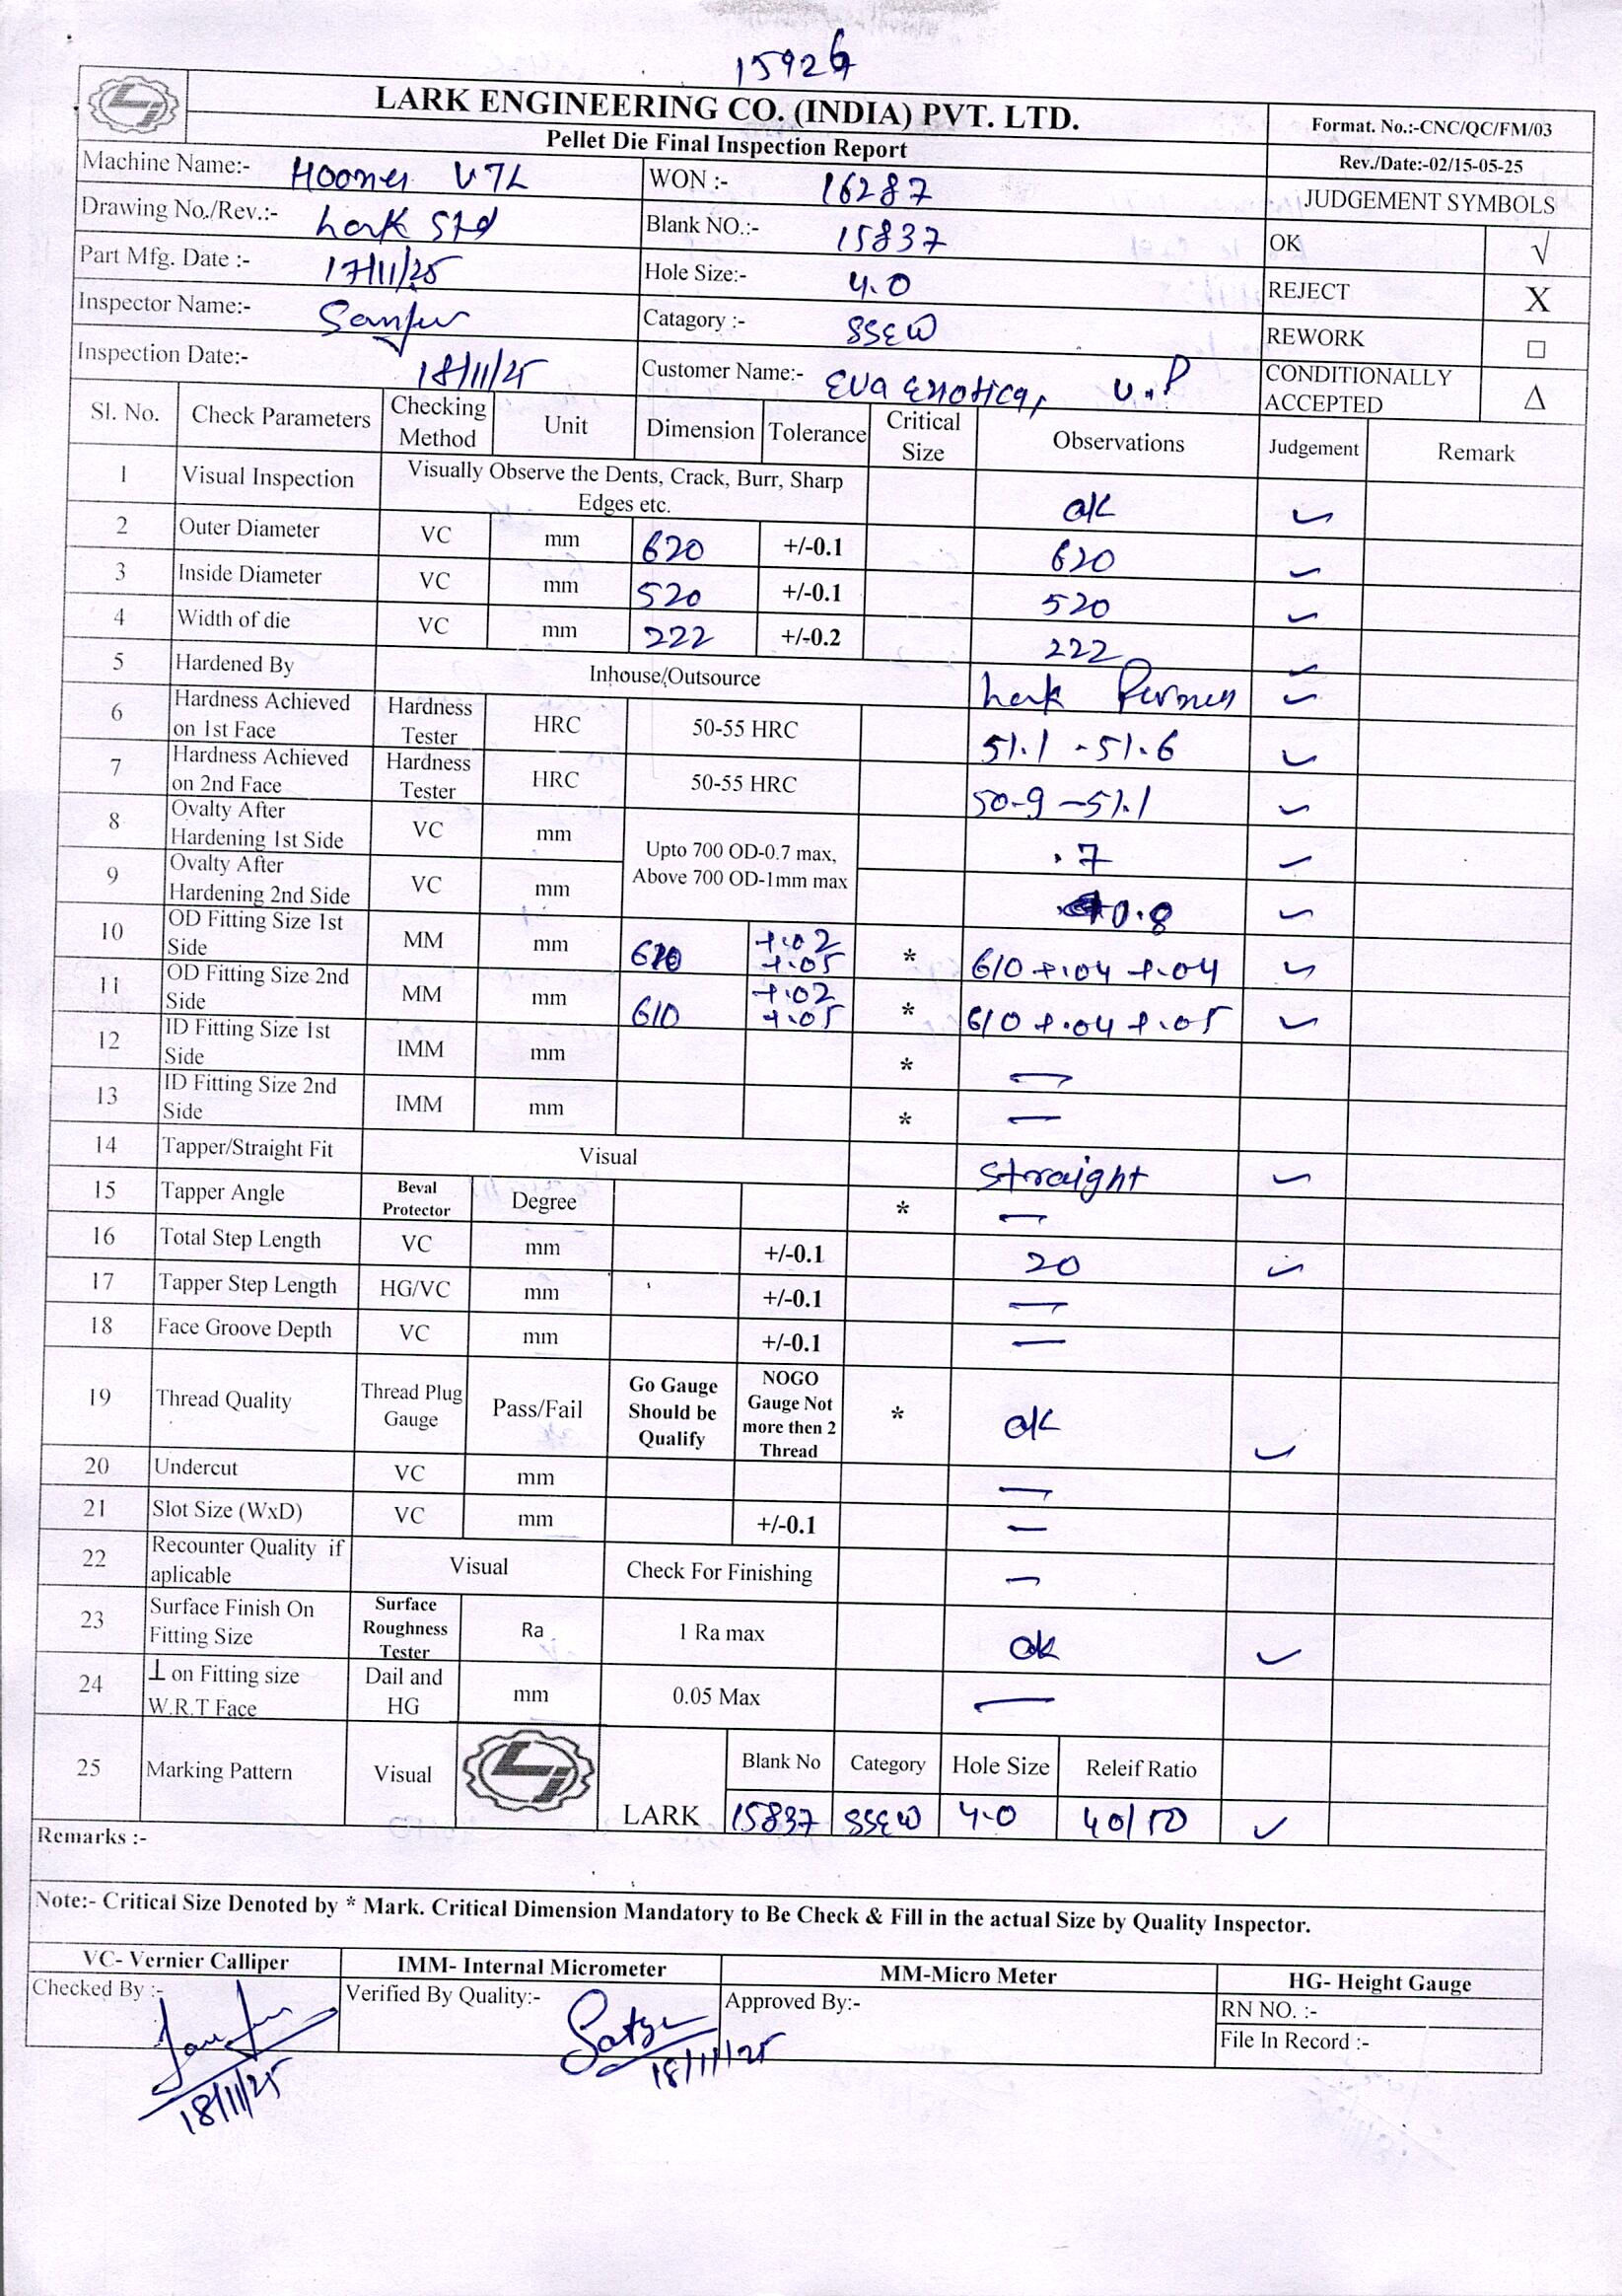 15926
LARK ENGINEERING CO. (INDIA) PVT. LTD.
Pellet Die Final Inspection Report
Format. No.:-CNC/QC/FM/03
Rev./Date:-02/15-05-25
Machine Name:- VTL
WON :- 16287
JUDGEMENT SYMBOLS
Drawing No./Rev.:- Lark Std
Blank NO.:- 15837
OK √
Part Mfg. Date :- 17/11/25
Hole Size:- 4.0
REJECT X
Inspector Name:-
Catagory :- SSEW
REWORK □
Inspection Date:- 18/11/25
Customer Name:- Eva Exotica, U.P
CONDITIONALLY ACCEPTED Δ
Sl. No. Check Parameters Checking Method Unit Dimension Tolerance Critical Size Observations Judgement Remark
1 Visual Inspection Visually Observe the Dents, Crack, Burr, Sharp Edges etc. ok ✓
2 Outer Diameter VC mm 620 +/-0.1 620 ✓
3 Inside Diameter VC mm 520 +/-0.1 520 ✓
4 Width of die VC mm 222 +/-0.2 222 ✓
5 Hardened By Inhouse/Outsource Lark ✓
6 Hardness Achieved on 1st Face Hardness Tester HRC 50-55 HRC 51.1 - 51.6 ✓
7 Hardness Achieved on 2nd Face Hardness Tester HRC 50-55 HRC 50.9 - 51.1 ✓
8 Ovalty After Hardening 1st Side VC mm Upto 700 OD-0.7 max, Above 700 OD-1mm max .7 ✓
9 Ovalty After Hardening 2nd Side VC mm 0.8 ✓
10 OD Fitting Size 1st Side MM mm 610 +.02 +.05 * 610 +.04 +.04 ✓
11 OD Fitting Size 2nd Side MM mm 610 +.02 +.05 * 610 +.04 +.05 ✓
12 ID Fitting Size 1st Side IMM mm * —
13 ID Fitting Size 2nd Side IMM mm * —
14 Tapper/Straight Fit Visual Straight ✓
15 Tapper Angle Beval Protector Degree * —
16 Total Step Length VC mm +/-0.1 20 ✓
17 Tapper Step Length HG/VC mm +/-0.1 —
18 Face Groove Depth VC mm +/-0.1 —
19 Thread Quality Thread Plug Gauge Pass/Fail Go Gauge Should be Qualify NOGO Gauge Not more then 2 Thread * ok ✓
20 Undercut VC mm —
21 Slot Size (WxD) VC mm +/-0.1 —
22 Recounter Quality if aplicable Visual Check For Finishing —
23 Surface Finish On Fitting Size Surface Roughness Tester Ra 1 Ra max ok ✓
24 ⊥ on Fitting size W.R.T Face Dail and HG mm 0.05 Max —
25 Marking Pattern Visual LARK Blank No Category Hole Size Releif Ratio
15837 SSEW 4.0 40/10 ✓
Remarks :-
Note:- Critical Size Denoted by * Mark. Critical Dimension Mandatory to Be Check & Fill in the actual Size by Quality Inspector.
VC- Vernier Calliper IMM- Internal Micrometer MM-Micro Meter HG- Height Gauge
Checked By :- Verified By Quality:- Approved By:- RN NO. :-
File In Record :-
18/11/25 18/11/25